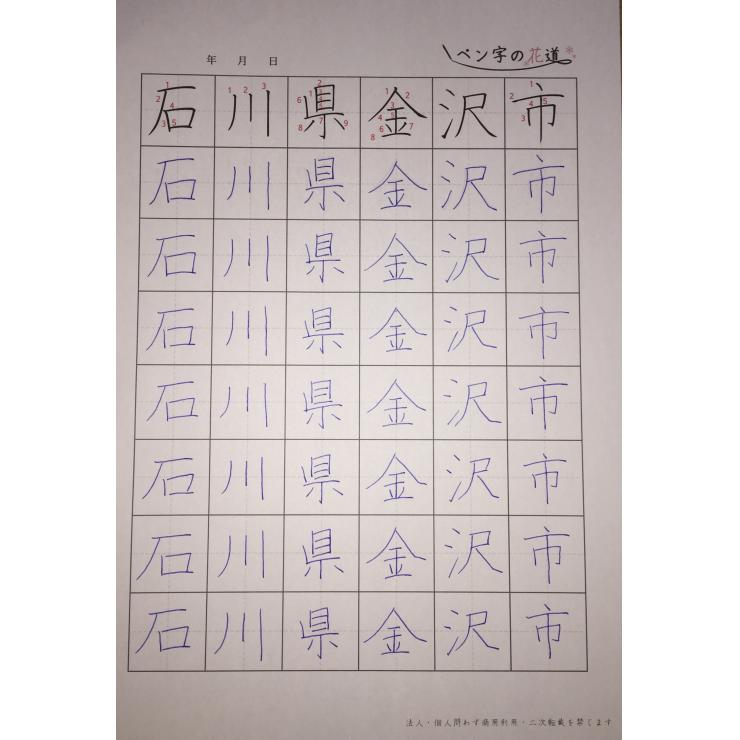 ペン字の花道
年 月 日
石川県金沢市
石川県金沢市
石川県金沢市
石川県金沢市
石川県金沢市
石川県金沢市
石川県金沢市
石川県金沢市
法人・個人問わず商用利用・二次転載を禁じます